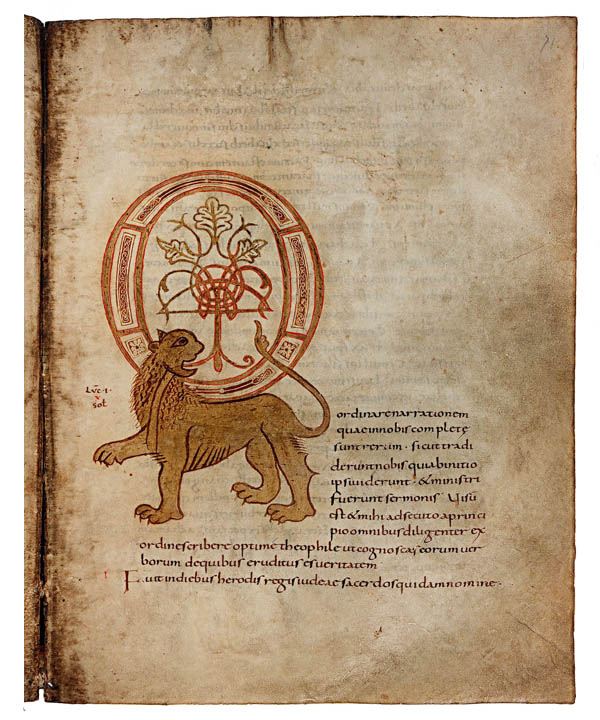 LVC·I·
V
SOL
Q
ordinare narrationem
quae in nobis complete
sunt rerum · sicut tradi
derunt nobis qui ab initio
ipsi viderunt · & ministri
fuerunt sermonis Visu
est & mihi adsecuto a princi
pio omnibus diligenter ex
ordine scribere optime theophile ut cognoscas eorum ver
borum de quibus eruditus es veritatem
Fuit in diebus herodis regis iudeae sacerdos quidam nomine ·